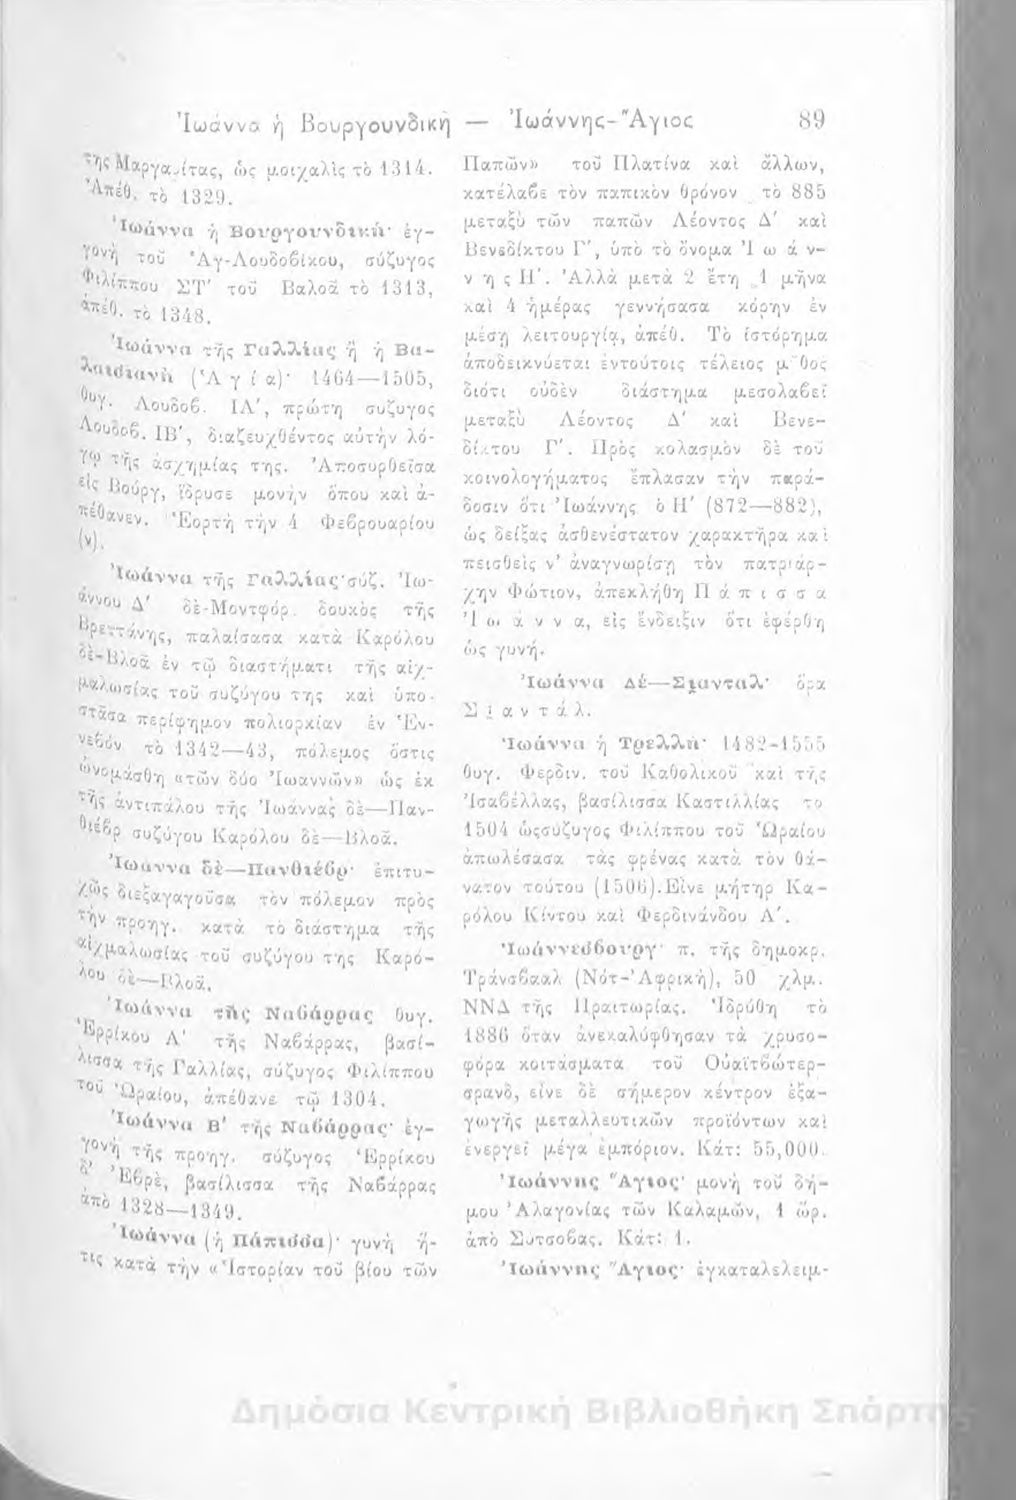 Ἰωάννα ἡ Βουργουνδικὴ — Ἰωάννης-Ἅγιος 89
τῆς Μαργαρίτας, ὡς μοιχαλὶς τὸ 1314.
Ἀπέθ. τὸ 1329.
Ἰωάννα ἡ Βουργουνδικὴ· ἐγ-
γονὴ τοῦ Ἁγ-Λουδοβίκου, σύζυγος
Φιλίππου ΣΤ' τοῦ Βαλοᾶ τὸ 1313,
ἀπέθ. τὸ 1348.
Ἰωάννα τῆς Γαλλίας ἢ ἡ Βα-
λαισιανὴ (Ἁγία)· 1464—1505,
θυγ. Λουδοβ. ΙΑ', πρώτη συζυγος
Λουδοβ. ΙΒ', διαζευχθέντος αὐτὴν λό-
γῳ τῆς ἀσχημίας της. Ἀποσυρθεῖσα
εἰς Βούργ, ἵδρυσε μονὴν ὅπου καὶ ἀ-
πέθανεν. Ἑορτὴ τὴν 4 Φεβρουαρίου
(ν).
Ἰωάννα τῆς Γαλλίας· σύζ. Ἰω-
άννου Δ' δὲ-Μοντφόρ. δουκὸς τῆς
Βρεττάνης, παλαίσασα κατὰ Καρόλου
δὲ-Βλοᾶ ἐν τῷ διαστήματι τῆς αἰχ-
μαλωσίας τοῦ συζύγου της καὶ ὑπο-
στᾶσα περίφημον πολιορκίαν ἐν Ἐν-
νεβὸν τὸ 1342—43, πόλεμος ὅστις
ὠνομάσθη «τῶν δύο Ἰωαννῶν» ὡς ἐκ
τῆς ἀντιπάλου τῆς Ἰωάννας δὲ—Παν-
θιέβρ συζύγου Καρόλου δὲ—Βλοᾶ.
Ἰωάννα δὲ—Πανθιέβρ· ἐπιτυ-
χῶς διεξαγαγοῦσα τὸν πόλεμον πρὸς
τὴν προηγ. κατὰ τὸ διάστημα τῆς
αἰχμαλωσίας τοῦ συζύγου της Καρό-
λου δὲ—Βλοᾶ.
Ἰωάννα τῆς Ναβάρρας θυγ.
Ἐρρίκου Α' τῆς Ναβάρρας, βασί-
λισσα τῆς Γαλλίας, σύζυγος Φιλίππου
τοῦ Ὡραίου, ἀπέθανε τῷ 1304.
Ἰωάννα Β' τῆς Ναβάρρας· ἐγ-
γονὴ τῆς προηγ. σύζυγος Ἐρρίκου
δ' Ἐβρέ, βασίλισσα τῆς Ναβάρρας
ἀπὸ 1328—1349.
Ἰωάννα (ἡ Πάπισσα)· γυνὴ ἥ-
τις κατὰ τὴν «Ἱστορίαν τοῦ βίου τῶν
Παπῶν» τοῦ Πλατίνα καὶ ἄλλων,
κατέλαβε τὸν παπικὸν θρόνον τὸ 885
μεταξὺ τῶν παπῶν Λέοντος Δ' καὶ
Βενεδίκτου Γ', ὑπὸ τὸ ὄνομα Ἰωάν-
νης Η'. Ἀλλὰ μετὰ 2 ἔτη 1 μῆνα
καὶ 4 ἡμέρας γεννήσασα κόρην ἐν
μέσῃ λειτουργίᾳ, ἀπέθ. Τὸ ἱστόρημα
ἀποδεικνύεται ἐντούτοις τέλειος μῦθος
διότι οὐδὲν διάστημα μεσολαβεῖ
μεταξὺ Λέοντος Δ' καὶ Βενε-
δίκτου Γ'. Πρὸς κολασμὸν δὲ τοῦ
κοινολογήματος ἔπλασαν τὴν παρά-
δοσιν ὅτι Ἰωάννης ὁ Η' (872—882),
ὡς δείξας ἀσθενέστατον χαρακτῆρα καὶ
πεισθεὶς ν' ἀναγνωρίσῃ τὸν πατριάρ-
χην Φώτιον, ἀπεκλήθη Πάπισσα
Ἰωάννα, εἰς ἔνδειξιν ὅτι ἐφέρθη
ὡς γυνή.
Ἰωάννα Δέ—Σιανταλ· ὅρα
Σιαντάλ.
Ἰωάννα ἡ Τρελλὴ· 1482-1555
θυγ. Φερδιν. τοῦ Καθολικοῦ καὶ τῆς
Ἰσαβέλλας, βασίλισσα Καστιλλίας το
1504 ὡςσύζυγος Φιλίππου τοῦ Ὡραίου
ἀπωλέσασα τὰς φρένας κατὰ τὸν θά-
νατον τούτου (1506). Εἶνε μήτηρ Κα-
ρόλου Κίντου καὶ Φερδινάνδου Α'.
Ἰωάννεσβουργ· π. τῆς δημοκρ.
Τράνσβααλ (Νότ-Ἀφρικὴ), 50 χλμ.
ΝΝΔ τῆς Πραιτωρίας. Ἱδρύθη τὸ
1886 ὅταν ἀνεκαλύφθησαν τὰ χρυσο-
φόρα κοιτάσματα τοῦ Οὐαϊτβώτερ-
σρανδ, εἶνε δὲ σήμερον κέντρον ἐξα-
γωγῆς μεταλλευτικῶν προϊόντων καὶ
ἐνεργεῖ μέγα ἐμπόριον. Κάτ: 55,000.
Ἰωάννης Ἅγιος· μονὴ τοῦ δή-
μου Ἀλαγονίας τῶν Καλαμῶν, 1 ὥρ.
ἀπὸ Σύτσοβας. Κάτ: 1.
Ἰωάννης Ἅγιος· ἐγκαταλελειμ-
Δημόσια Κεντρική Βιβλιοθήκη Σπάρτης